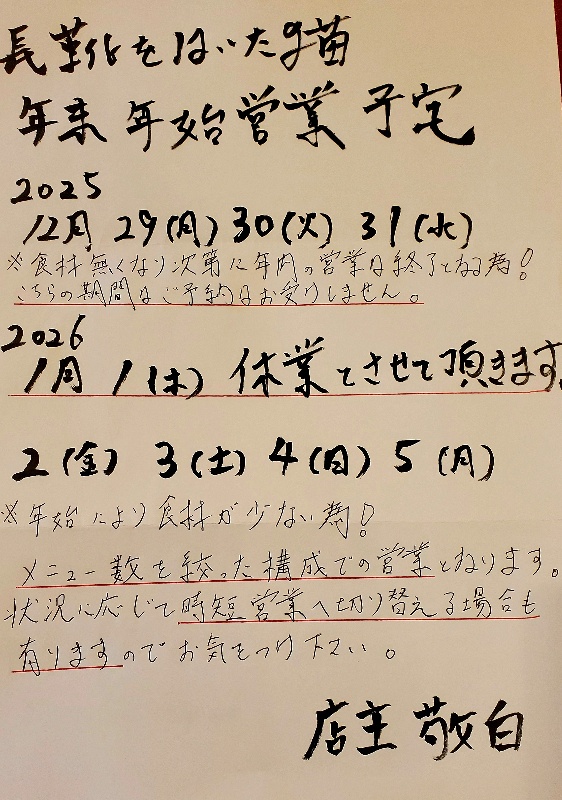 長靴をはいた猫
年末年始営業予定
2025
12月 29(月) 30(火) 31(水)
※食材無くなり次第に年内の営業は終了となる為!
こちらの期間はご予約はお受けしません。
2026
1月 1(木) 休業とさせて頂きます
2(金) 3(土) 4(日) 5(月)
※年始により食材が少ない為!
メニュー数を絞った構成での営業となります。
状況に応じて時短営業へ切り替える場合も
有りますのでお気をつけ下さい。
店主 敬白